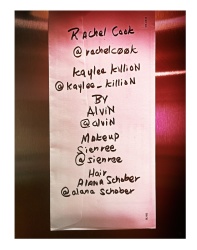 Rachel Cook
@rachelcook
Kaylee Killion
@kaylee_killion
By
Alvin
@alvin
Makeup
Sienree
@sienree
Hair
Alana Schober
@alana schober